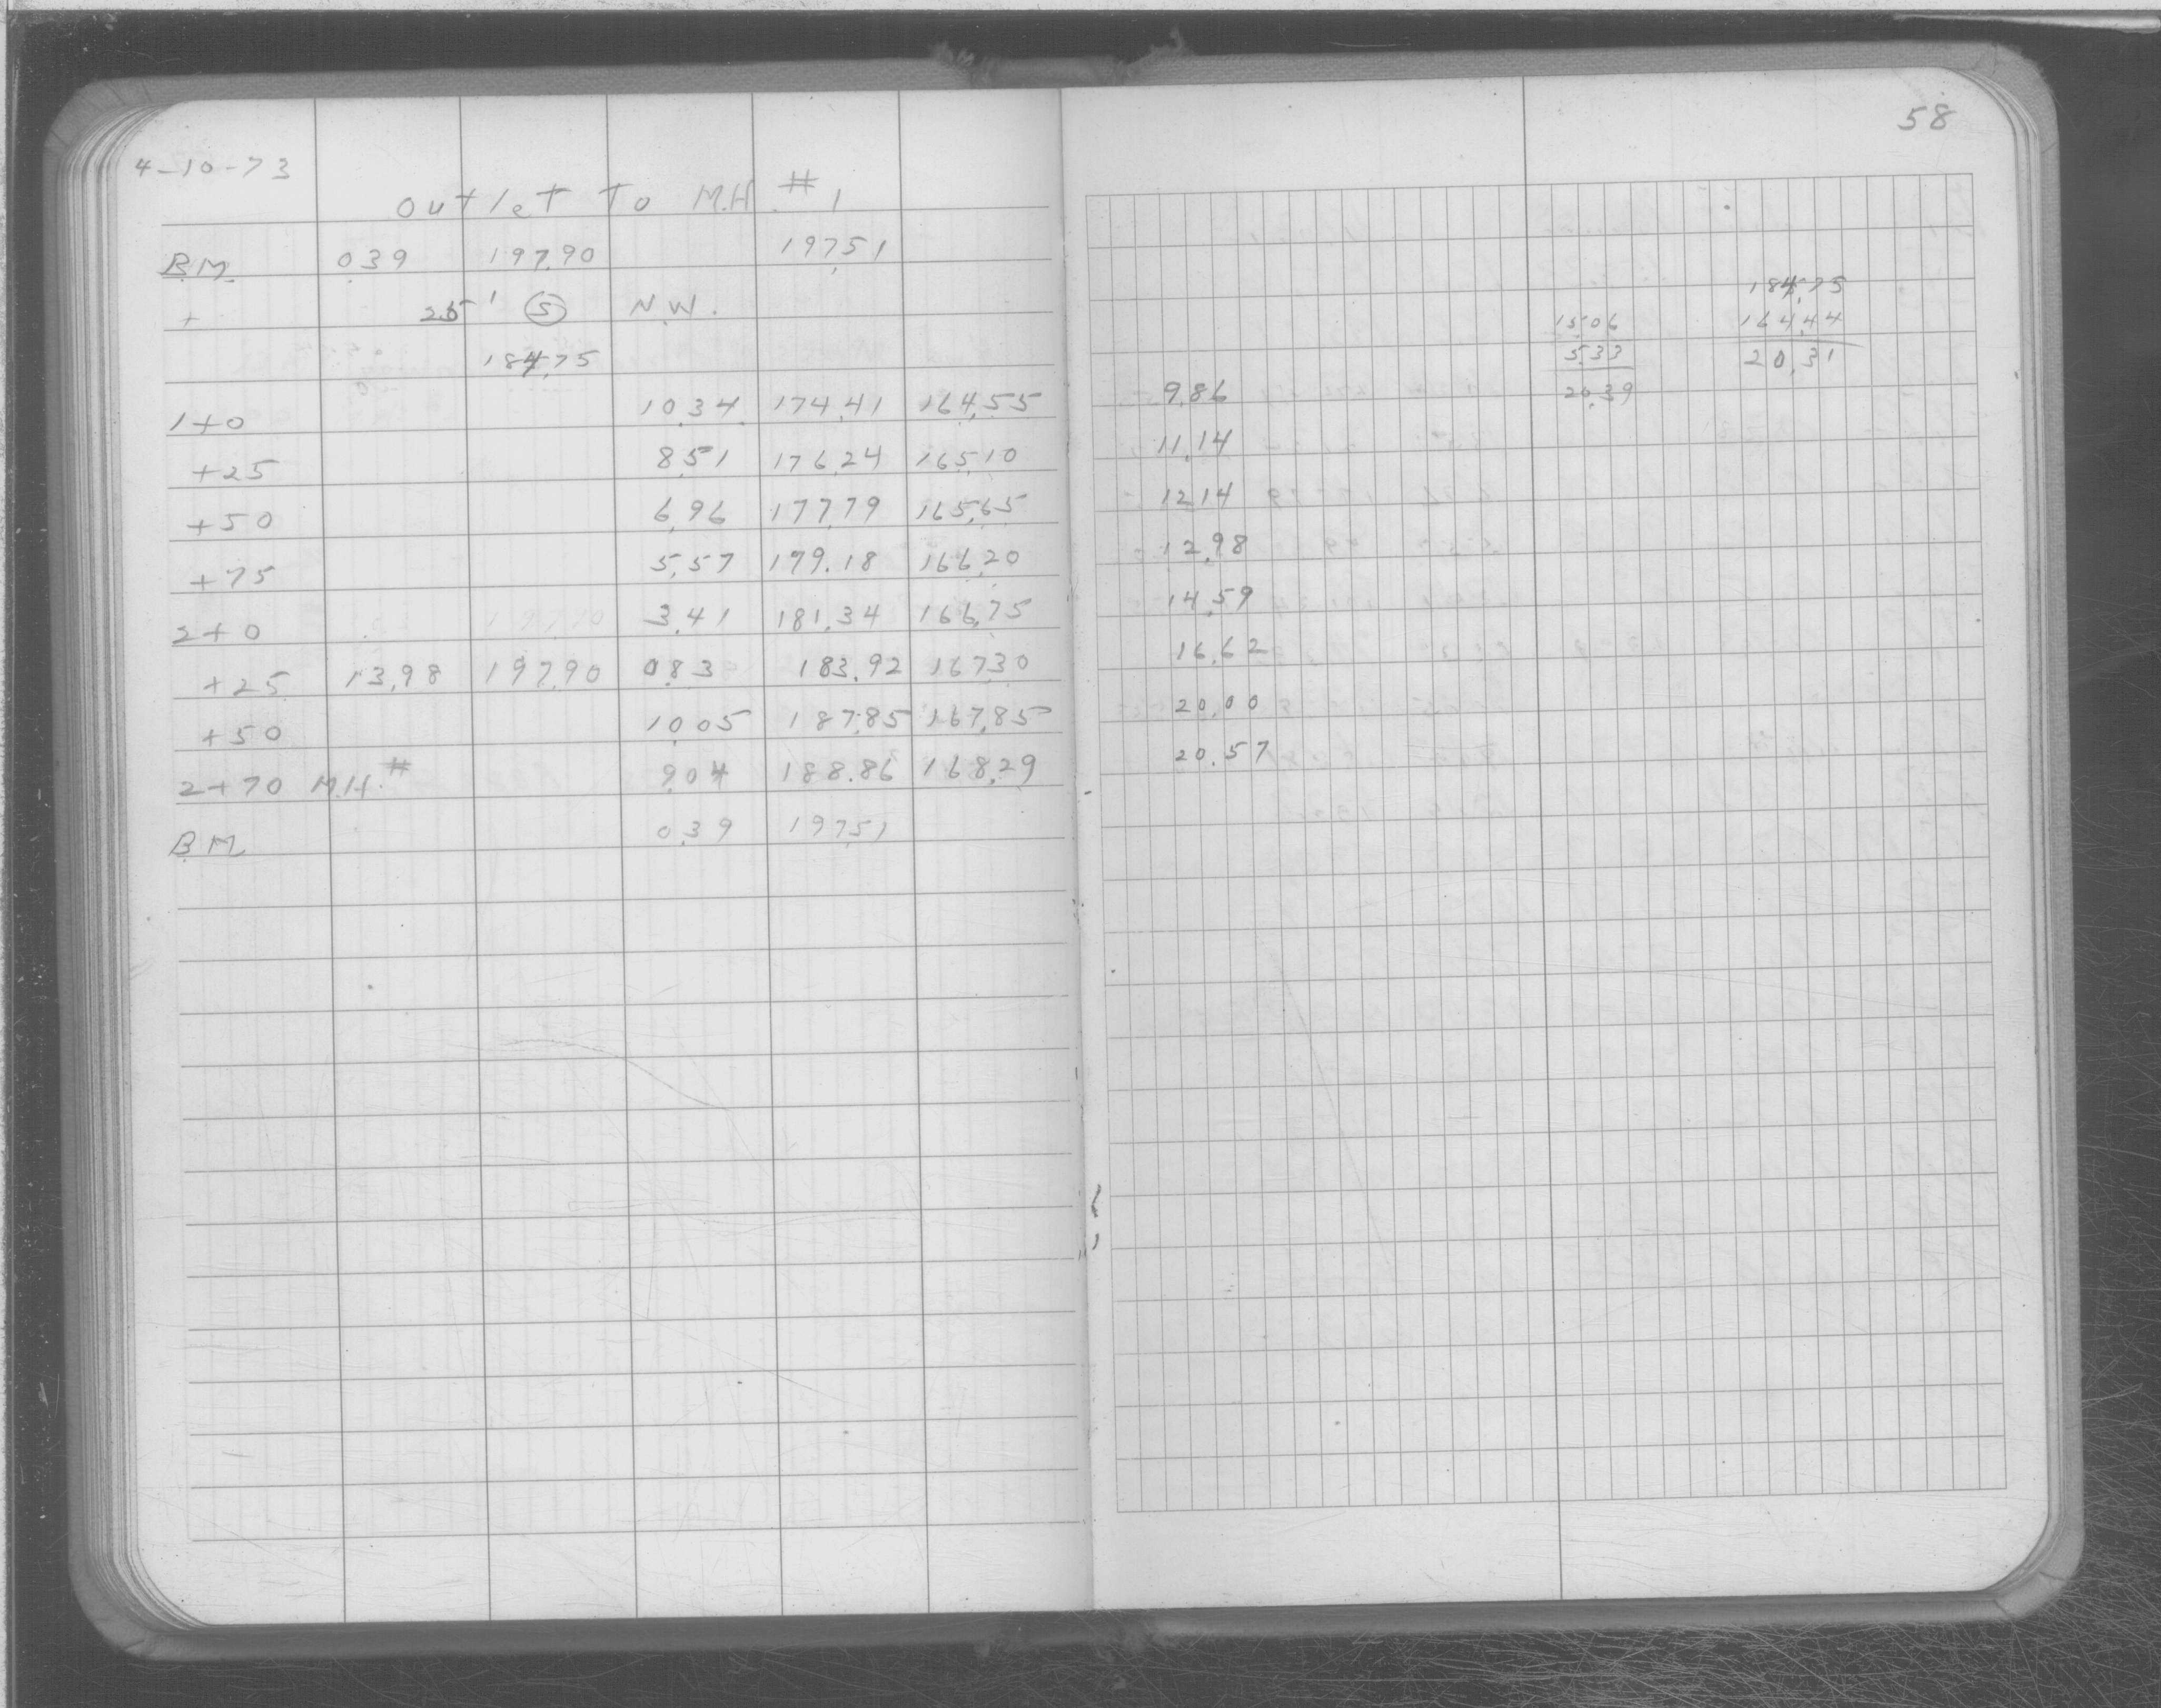 4-10-73
Outlet To M.H. #1
B.M. 0.39 197.90 197.51
+ 25' (S) N.W.
184.75
1+0 10.34 174.41 164.55
+25 8.51 176.24 165.10
+50 6.96 177.79 165.65
+75 5.57 179.18 166.20
2+0 3.41 181.34 166.75
+25 13.98 197.90 0.83 183.92 167.30
+50 10.05 187.85 167.85
2+70 M.H.# 9.04 188.86 168.29
B.M. 0.39 197.51
58
184.75
15.06 164.44
5.33 20.31
9.86 20.39
11.14
12.14
12.98
14.59
16.62
20.00
20.57